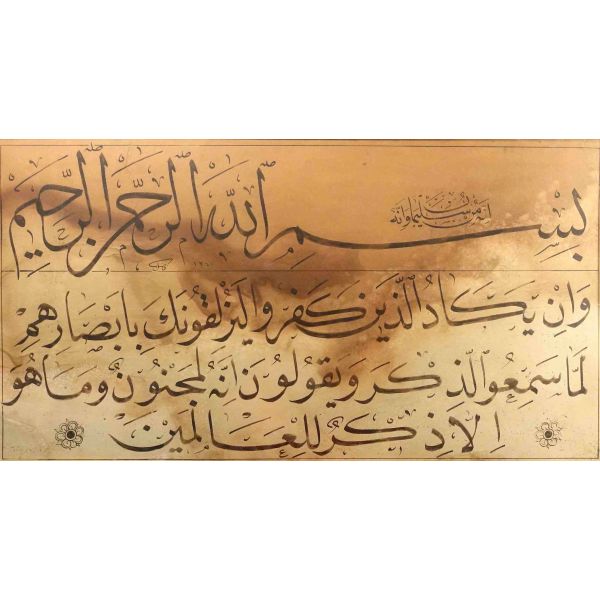 إنه من سليمان وإنه
بسم الله الرحمن الرحيم
وان يكاد الذين كفروا ليزلقونك بابصارهم
لما سمعوا الذكر ويقولون انه لمجنون وما هو
الا ذكر للعالمين